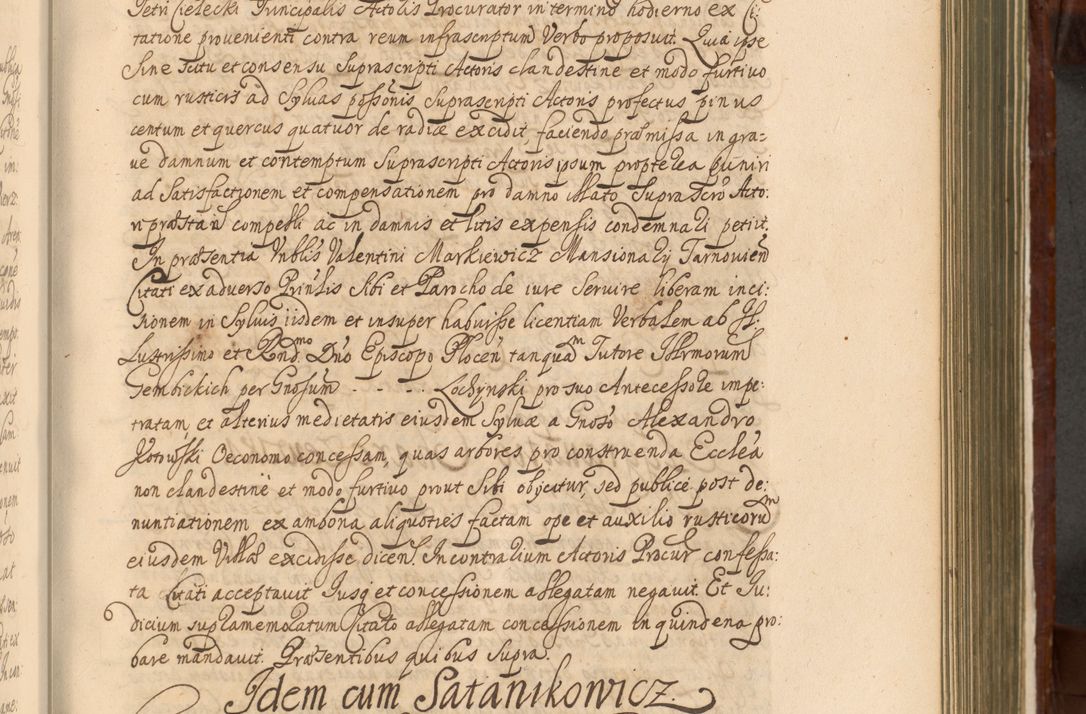 Petri Cielecki Principalis Actoris Procurator in termino hodierno ex Ci:
tatione provenienti contra reum infrascriptum Verbo proposuit. Quia ipse
Sine scitu et consensu Suprascripti Actoris clandestine et modo furtivo
cum rusticis ad Sylvas possonis Suprascripti Actoris profectus pinus
centum et quercus quatuor de radice excidit, faciendo præmissa in gra=
ve damnum et contemptum Suprascripti Actoris ipsum propterea puniri
ad Satisfactionem et compensationem pro damno illato Suprascro Acto:
ri præstan compelli ac in damnis et litis expensis condemnari petiit.
In præsentia Vnblis Valentini Markiewicz Mansionarij Tarnovien
Citati ex adverso Prinlis Sibi et Parocho de iure Servire liberam inci:
sionem in Sylvis iisdem et insuper habuisse licentiam Verbalem ab Jll.
Lustrissimo et Rndmo Dno Episcopo Plocen, tanquam Tutore Jllrmorum
Gembickich per Gnosum . . . . . Loczynski pro suo Antecessore impe:
tratam, et alterius medietatis eiusdem Sylvæ a Gnoso Alexandro
Kotowski Oeconomo concessam, quas arbores pro construenda Ecclea
non clandestine et modo furtivo prout Sibi obijcitur, sed publice post de:
nuntiationem ex ambona aliquoties factam ope et auxilio rusticorum
eiusdem Villæ excidisse dicen. In contrarium Actoris Procur confessa:
ta Citati acceptavit Jusq et concessionem allegatam negavit. Et Ju:
dicium supramemoratum Citato allegatam concessionem in quindena pro:
bare mandavit. Præsentibus quibus Supra.
Idem cum Satanikowicz.